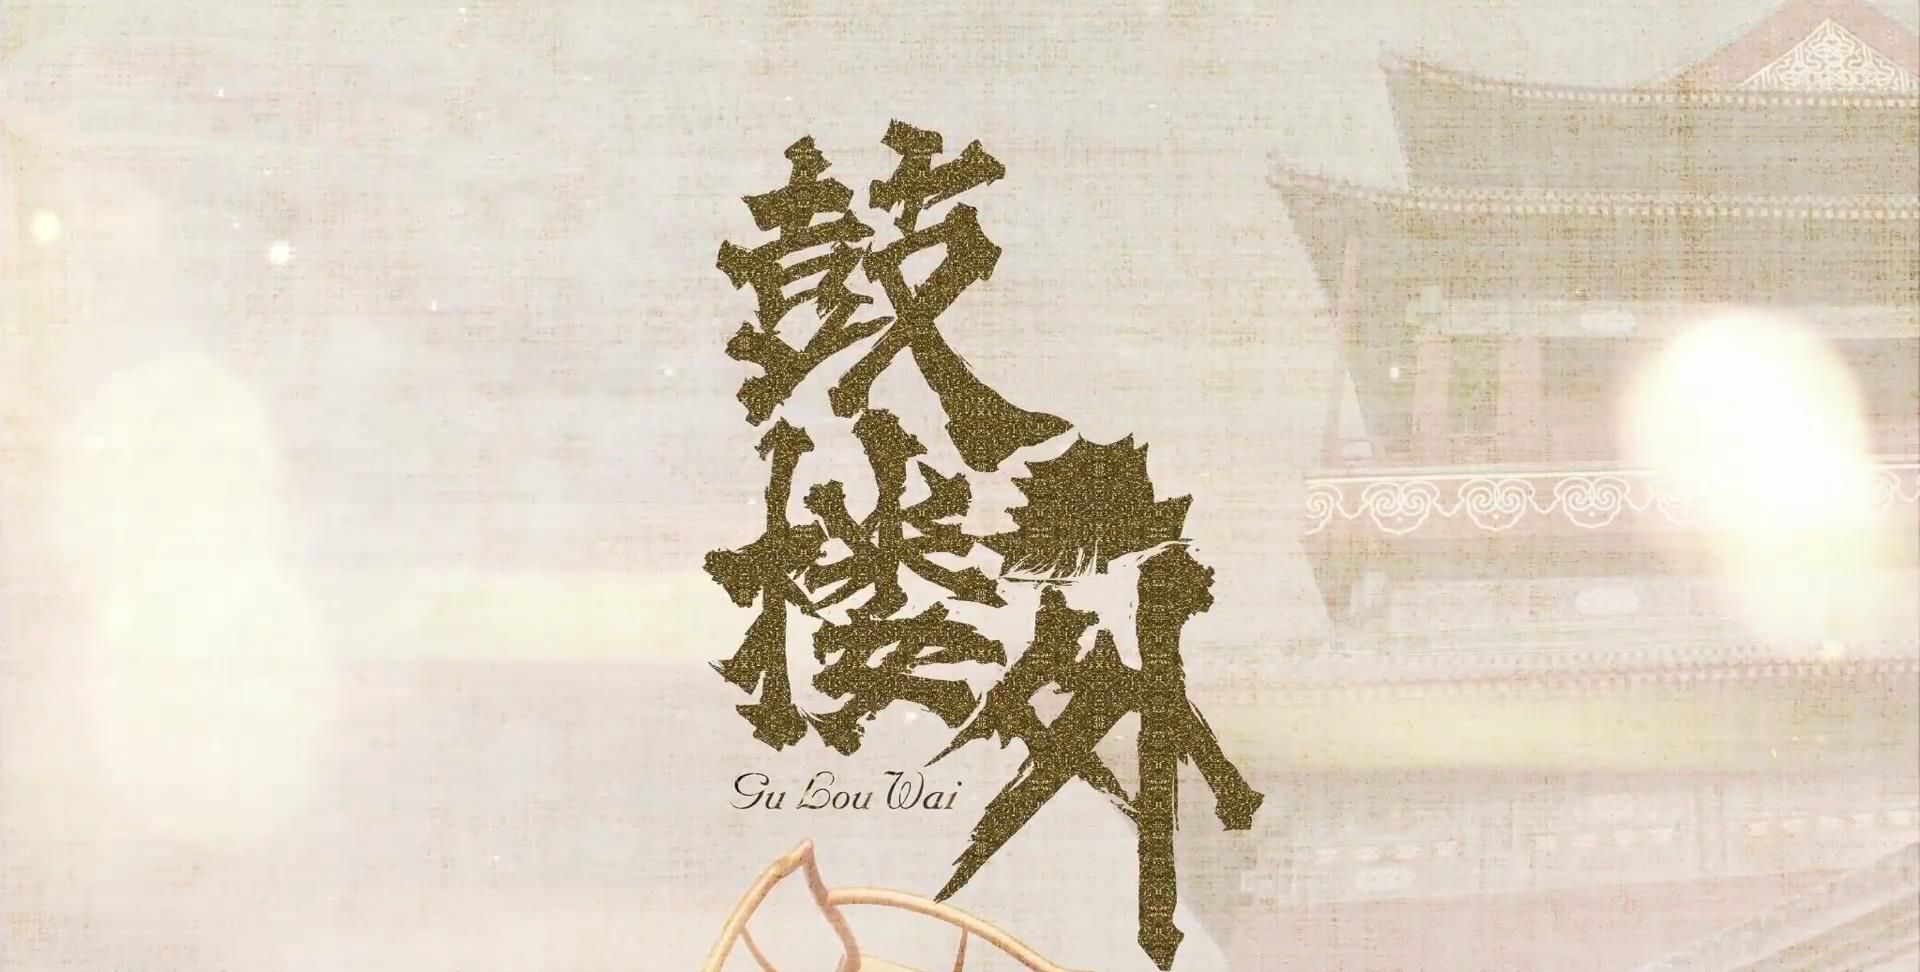 鼓楼外
Gu Lou Wai